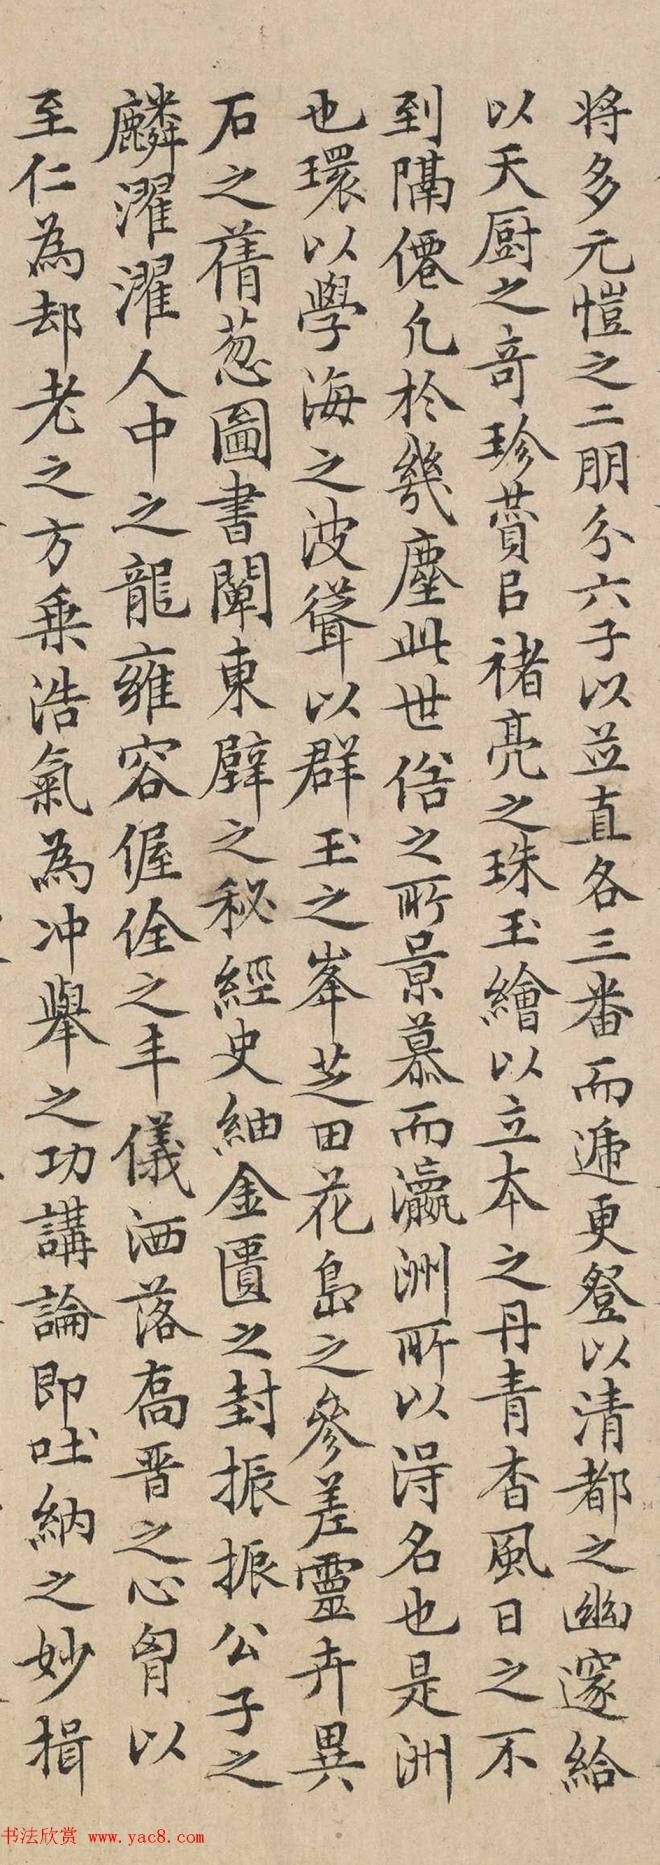 将多元愷之二朋分六子以並直各三番而遞更登以清都之幽邃給
以天厨之奇珍蕡㠯褚亮之珠玉繪以立本之丹青杳風日之不
到隔僊凡於幾塵此世俗之所景慕而瀛洲所以淂名也是洲
也環以學海之波聳以群玉之峯芝田花島之參差靈卉異
石之蒨葱圖書闡東壁之秘經史紬金匱之封振振公子之
麟濯濯人中之龍雍容偓佺之丰儀洒落喬晋之心胷以
至仁為却老之方乗浩氣為冲舉之功講論即吐納之妙揖
书法欣赏 www.yac8.com